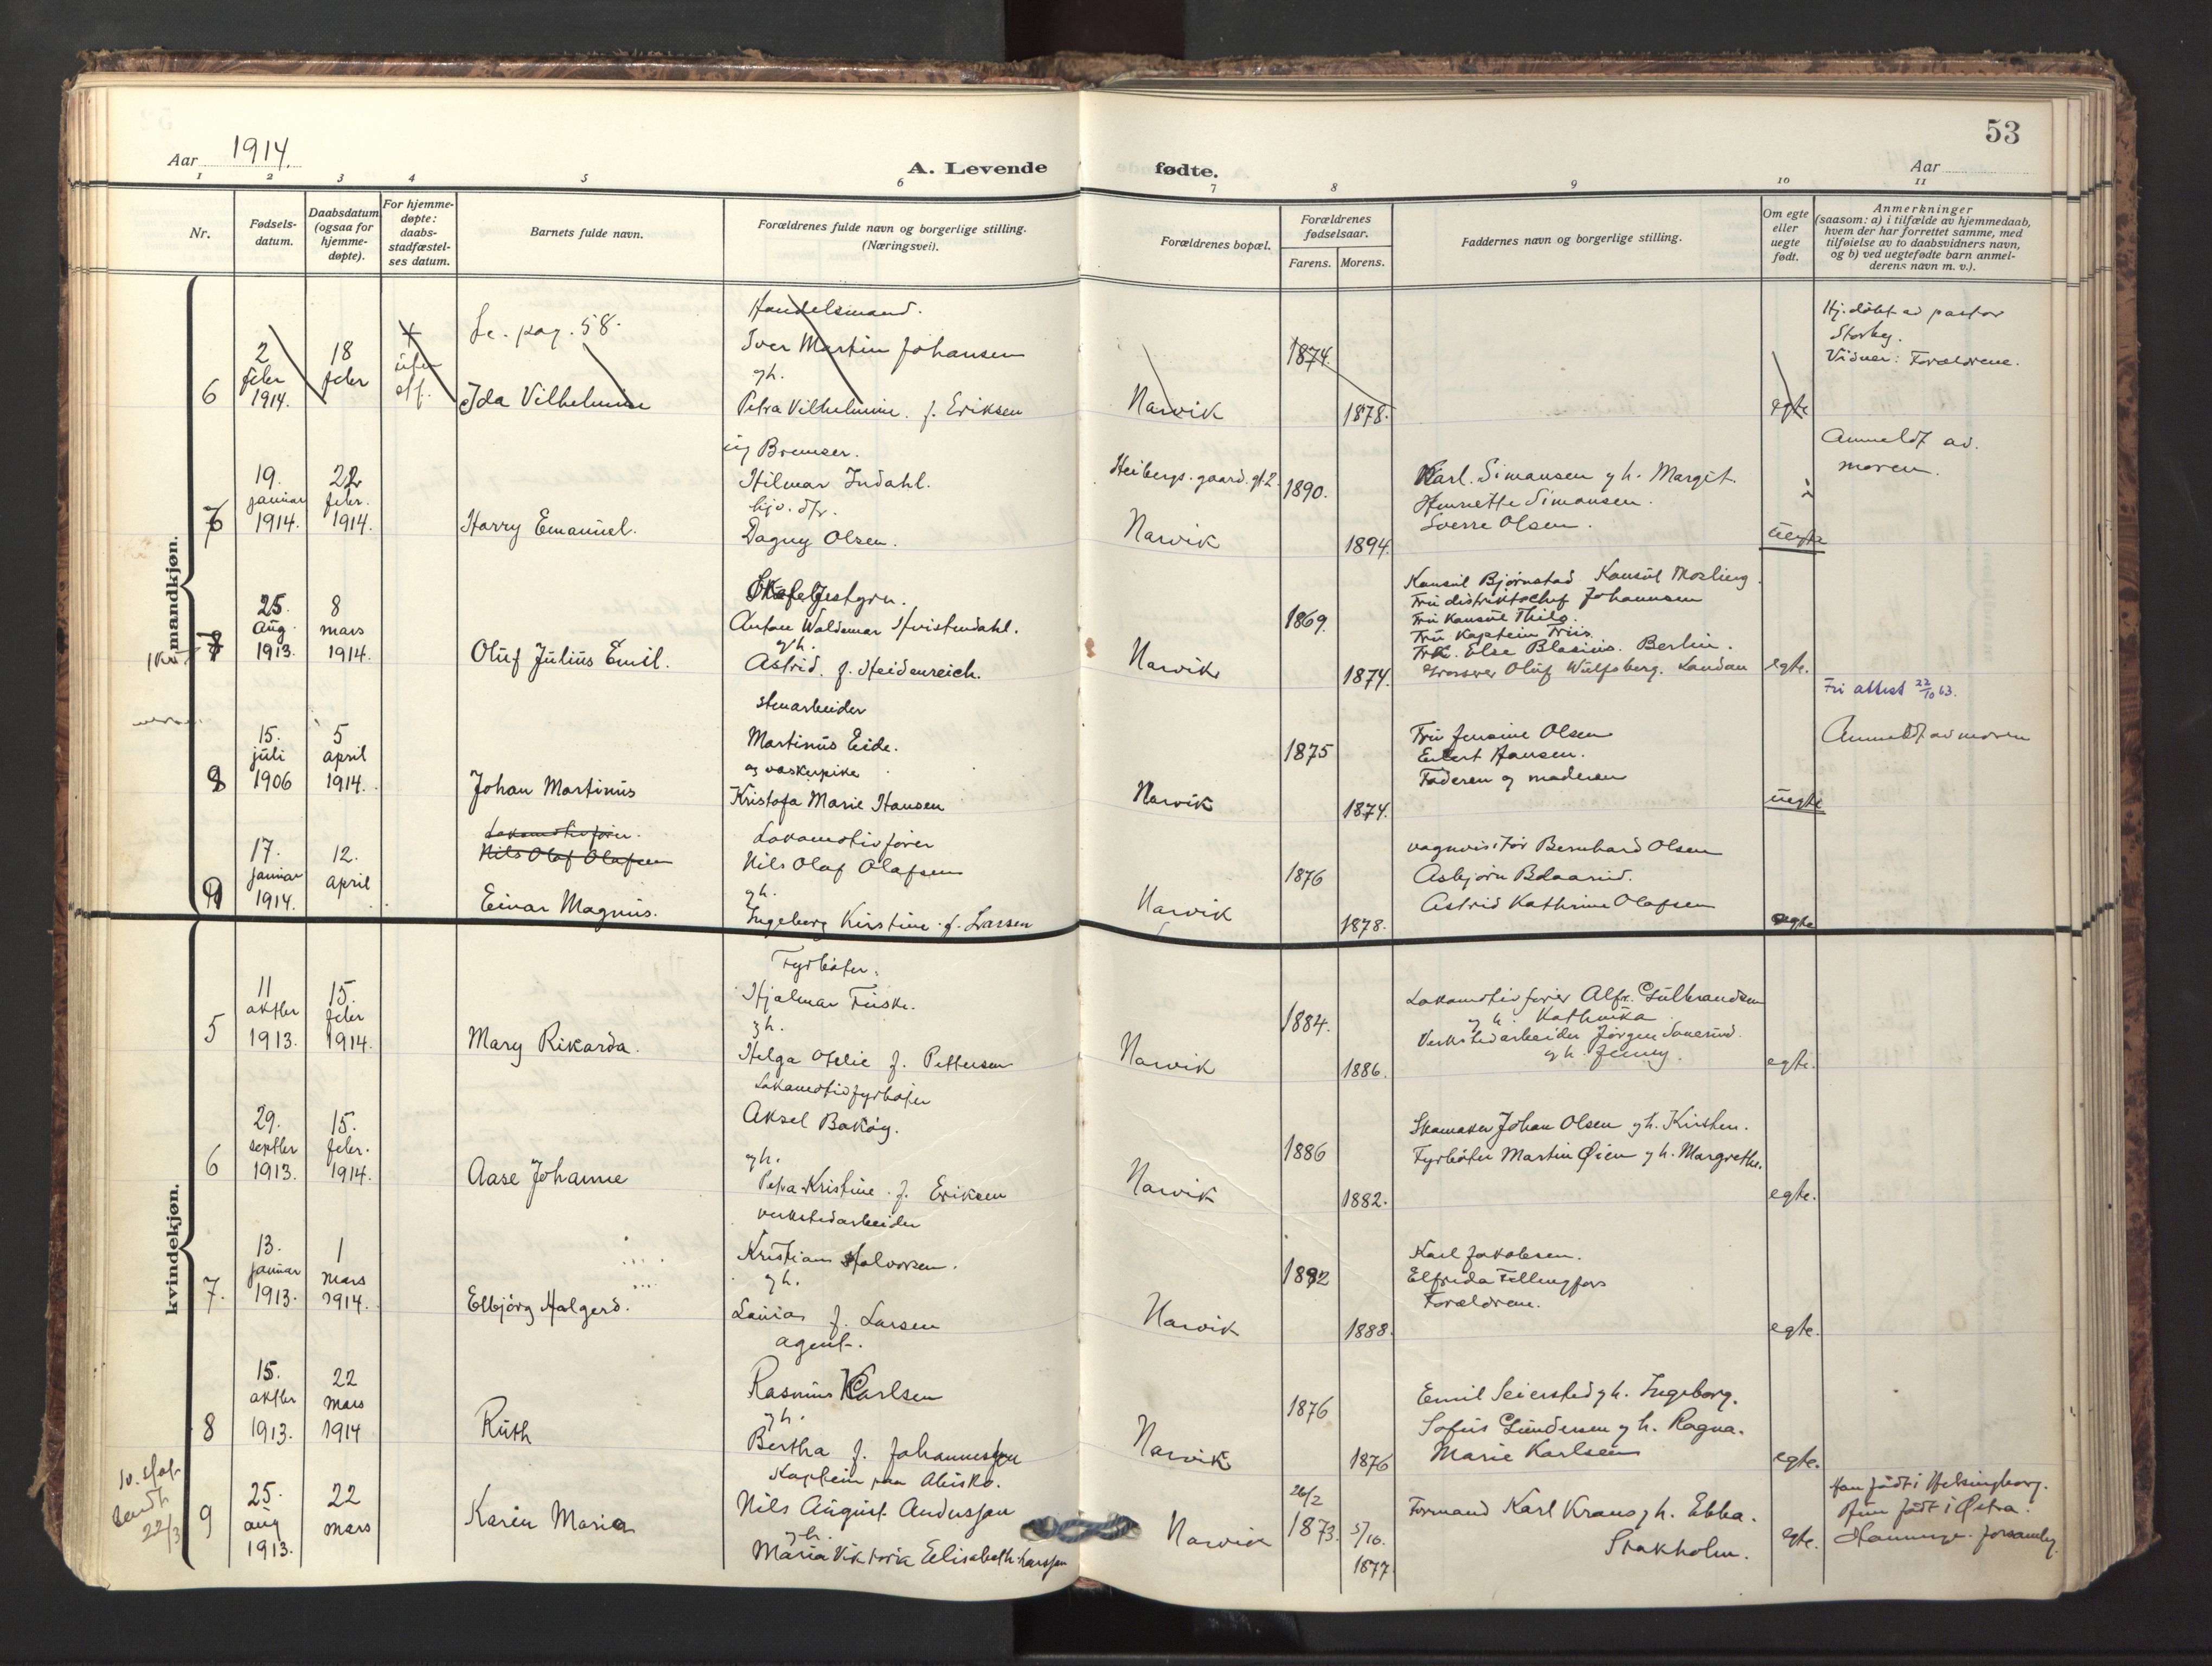 53
Aar 1914.
A. Levende fødte.
Aar
1 2 3 4 5 6 7 8 9 10 11
Nr.
Fødsels-
datum.
Daabsdatum
(ogsaa for
hjemme-
døpte).
For hjemme-
døpte:
daabs-
stadfæstel-
ses datum.
Barnets fulde navn.
Forældrenes fulde navn og borgerlige stilling.
(Næringsvei).
Forældrenes bopæl.
Forældrenes
fødselsaar.
Farens. Morens.
Faddernes navn og borgerlige stilling.
Om egte
eller
uegte
født.
Anmerkninger
(saasom: a) i tilfælde av hjemmedaab,
hvem der har forrettet samme, med
tilføielse av to daabsvidners navn,
og b) ved uegtefødte barn anmel-
derens navn m. v.).
mandkjøn.
6
2
febr
1914.
18
febr
Se. pag. 58.
Ida Vilhelmine
Handelsmand.
Iver Martin Johansen
gh.
Petra Vilhelmine. f. Eriksen
Narvik
1874.
1878.
egte
Hj. døbt av pastor
Vidner: Forældrene.
19.
januar
1914.
22
febr.
1914.
Harry Emanuel.
Bremser.
Hilmar Indahl.
Dagny Olsen.
Heibergs. gaard.
Narvik
1890.
1894.
Karl. Simansen gh. Margit.
Henriette Simansen.
Sverre Olsen.
uegte
Anmeldt av.
moren.
25.
Aug.
1913.
8
mars
1914.
Oluf Julius Emil.
Anton Waldemar Hvistendahl.
gh.
Astrid. f. Heidenreich.
Narvik
1869.
1874.
Konsul Bjørnstad Konsul
Fru distriktschef Johannsen
Fru Konsul Thilo.
Fru Kaptein Friis.
Frk. Else Blasius. Berlin.
Oluf Wulfsberg. London
egte.
Fri attest 22/10 63.
15.
juli
1906
5
april
1914.
Johan Martinus
Stenarbeider
Martinus Eide.
og vaskepike
Kristofa Marie Hansen
Narvik
1875
1874.
Fru Jensine Olsen
Hansen.
Faderen og moderen
uegte
Anmeldt av moren
17.
januar
1914.
12.
april
Lokomotivfører.
Nils Olaf Olafsen
Einar Magnus.
Lokomotivfører
Nils Olaf Olafsen
gh.
Ingeborg Kirstine. f. Larsen
Narvik
1876
1878.
vognvisitør Bernhard Olsen
Asbjørn
Astrid Kathrine Olafsen
egte
kvindekjøn.
5
11
oktbr
1913.
15.
febr
1914.
Mary Rikarda.
Fyrbøter.
Hjalmar
gh.
Helga Ofelie f. Pettersen
Narvik
1884.
1886.
Lokomotivfører Alfr. Gulbrandsen
gh. Kathinka
Verkstedarbeider Jørgen
gh. Jenny.
egte.
6
29.
septbr
1913.
15.
febr.
1914.
Aase Johanne
Lokomotivfyrbøter
Aksel Bakøy.
gh.
Petra Kristine. f. Eriksen
Narvik
1886
1882.
Skomaker Johan Olsen gh. Kirsten.
Fyrbøter Martin Øien gh. Margrethe.
egte.
7.
13.
januar
1913.
1
mars
1914.
Elbjørg Halgerd.
verkstedarbeider
Kristian Halvorsen.
gh.
Laura f. Larsen
Narvik
1892
1888.
Karl Jakobsen.
Elfrida Fellingfors
Forældrene.
egte.
8
15.
oktbr
1913.
22
mars
1914
Ruth
agent.
Rasmus Karlsen
gh.
Bertha f. Johannessen
Narvik
1876
1876
Emil Seiersted gh. Ingeborg.
Sofus Gundersen gh. Ragna.
Marie Karlsen
egte.
9
sendt
22/3
25.
aug
1913.
22
mars
Karin Maria
Kaptein paa Abisko.
Nils August Andersson
gh.
Maria Viktoria Elisabeth Larsson
Narvik
26/2
1873.
5/10.
1877.
Formand Karl Krans gh. Ebba.
Stokholm.
egte.
Han født i Helsingborg.
Hun født i Østra.